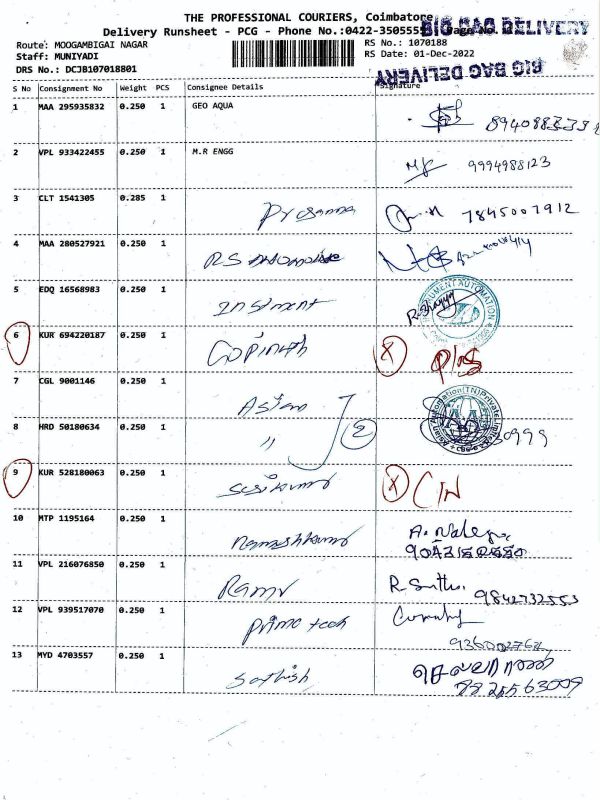 THE PROFESSIONAL COURIERS, Coimbatore
BIG BAG DELIVERY
Delivery Runsheet - PCG - Phone No.:0422-3505555
Page No.
Route: MOOGAMBIGAI NAGAR
RS No.: 1070188
Staff: MUNIYADI
RS Date: 01-Dec-2022
DRS No.: DCJB107018801
BIG BAG DELIVERY
S No Consignment No Weight PCS Consignee Details Signature
1 MAA 295935832 0.250 1 GEO AQUA
2 VPL 933422455 0.250 1 M.R ENGG 9994988123
3 CLT 1541305 0.285 1 Prasanna 7845007912
4 MAA 280527921 0.250 1 RS
5 EDQ 16568983 0.250 1 Instment
6 KUR 694220187 0.250 1 Gopinath X
7 CGL 9001146 0.250 1 Asian
8 HRD 50180634 0.250 1 〃 2
9 KUR 528180063 0.250 1 X
10 MTP 1195164 0.250 1
11 VPL 216076850 0.250 1 Ramu 9842732553
12 VPL 939517070 0.250 1 Prime tech
13 MYD 4703557 0.250 1 Sathish